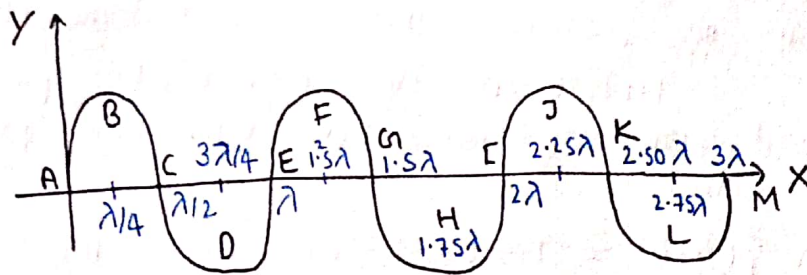 Y
B F J
A C 3λ/4 E 1.25λ G 1.5λ I 2.25λ K 2.50λ 3λ X
λ/4 λ/2 λ 2λ 2.75λ M
D H 1.75λ L